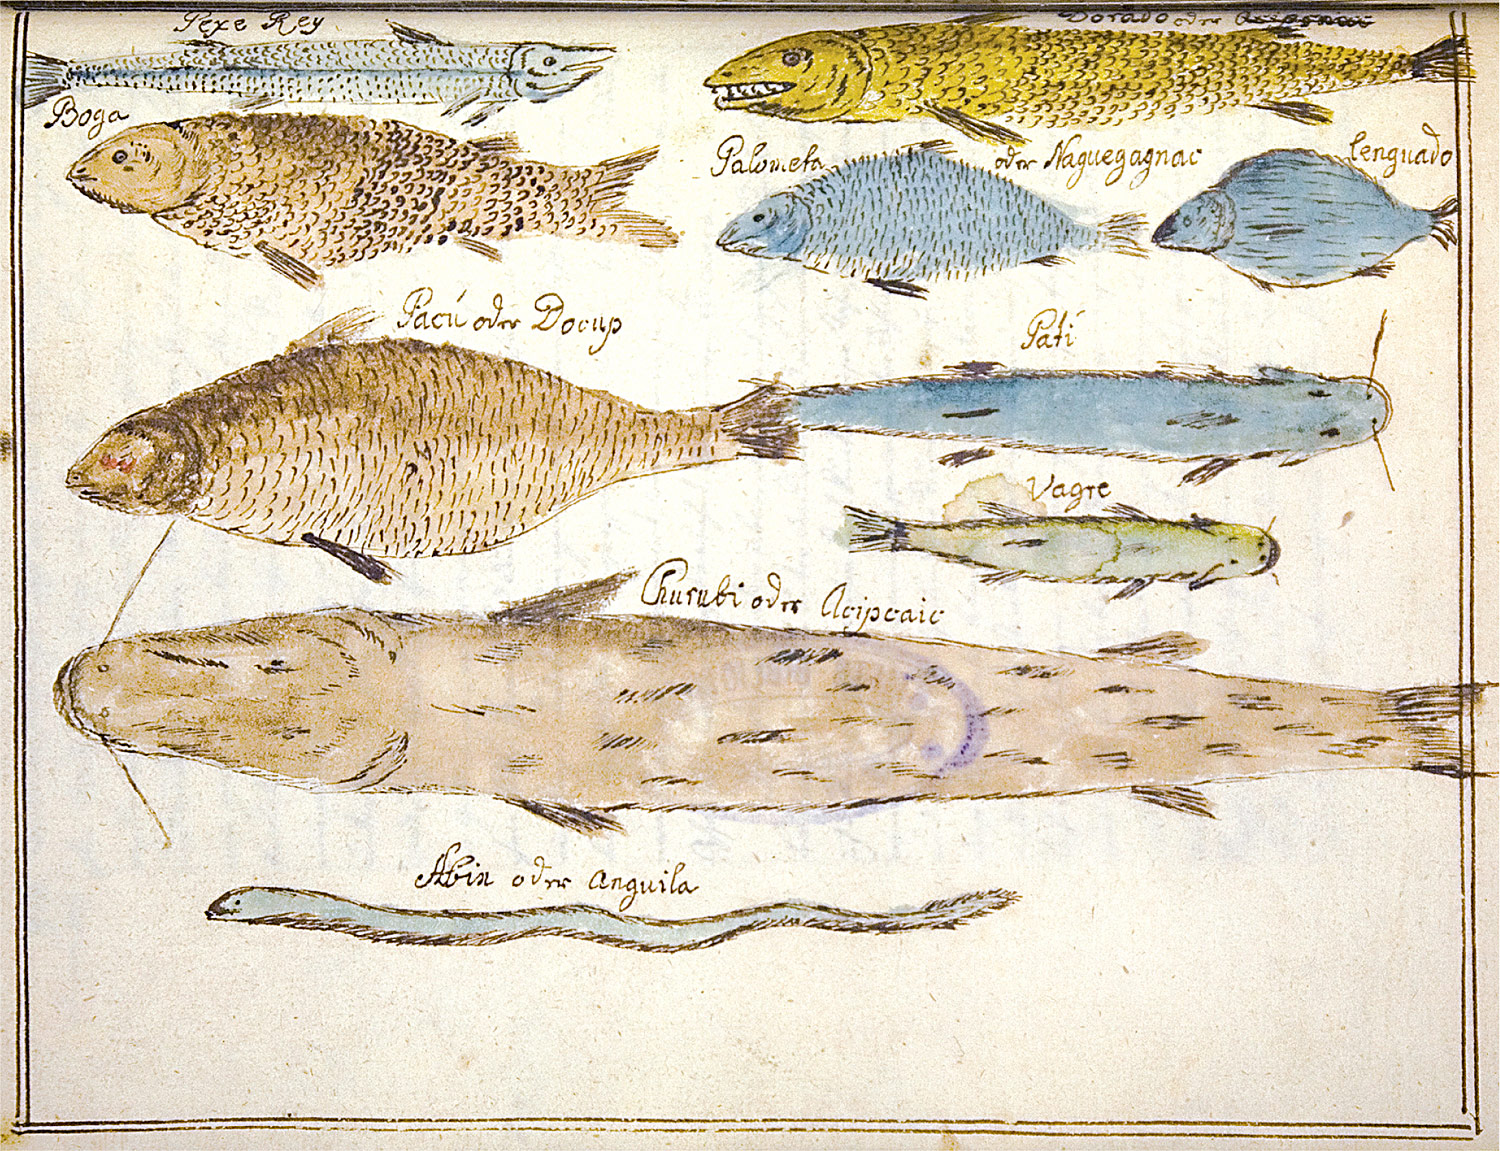 Pexe Rey
Dorado oder
Boga
Palometa oder Naguegagnac
lenguado
Pacú oder Docup
Patí
Vagre
Churubi oder
oder Anguila